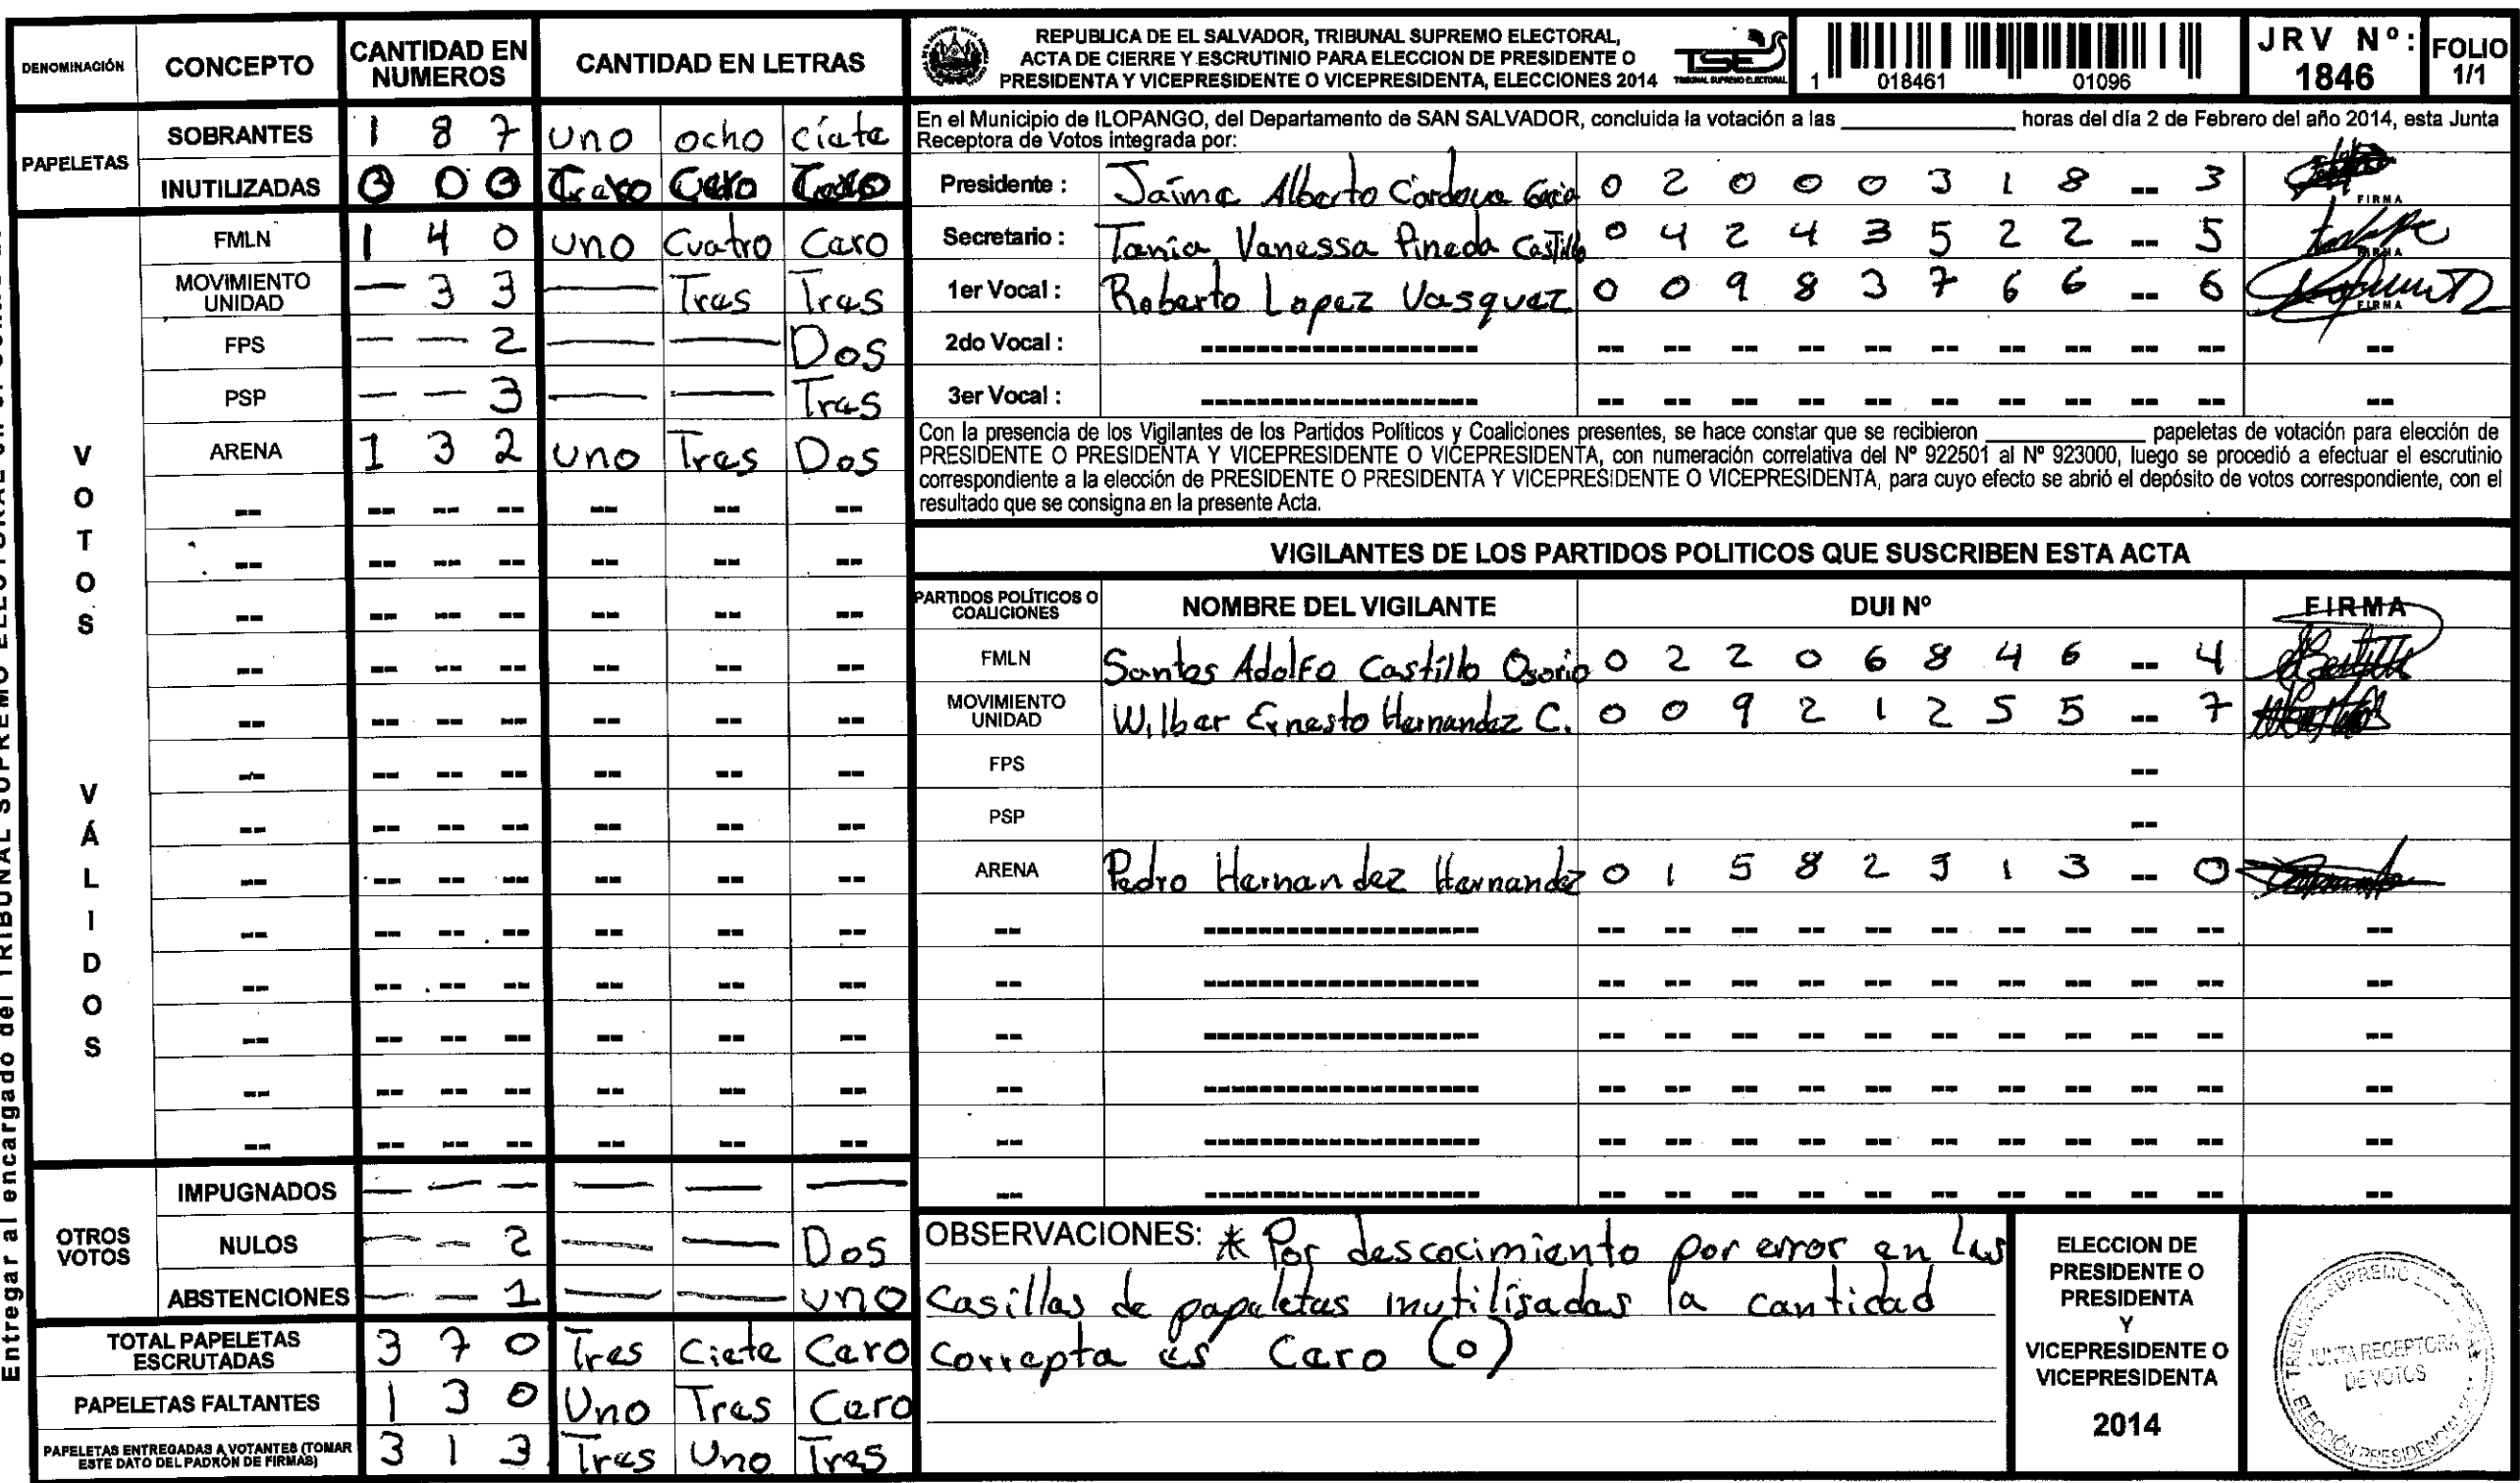 Entregar al encargado del TRIBUNAL SUPREMO ELECTORAL
DENOMINACIÓN CONCEPTO CANTIDAD EN NUMEROS CANTIDAD EN LETRAS
PAPELETAS
SOBRANTES 1 8 7 uno ocho ciete
INUTILIZADAS 0 0 0 Cero
VOTOS VÁLIDOS
FMLN 1 4 0 uno Cuatro Cero
MOVIMIENTO UNIDAD — 3 3 — Tres Tres
FPS — — 2 — — Dos
PSP — — 3 — — Tres
ARENA 1 3 2 uno Tres Dos
OTROS VOTOS
IMPUGNADOS — — — — — —
NULOS — — 2 — — Dos
ABSTENCIONES — — 1 — — uno
TOTAL PAPELETAS ESCRUTADAS 3 7 0 Tres Ciete Cero
PAPELETAS FALTANTES 1 3 0 Uno Tres Cero
PAPELETAS ENTREGADAS A VOTANTES (TOMAR ESTE DATO DEL PADRÓN DE FIRMAS) 3 1 3 Tres Uno Tres
REPUBLICA DE EL SALVADOR, TRIBUNAL SUPREMO ELECTORAL,
ACTA DE CIERRE Y ESCRUTINIO PARA ELECCION DE PRESIDENTE O
PRESIDENTA Y VICEPRESIDENTE O VICEPRESIDENTA, ELECCIONES 2014
TSE
TRIBUNAL SUPREMO ELECTORAL
1 018461 01096
JRV Nº: 1846
FOLIO 1/1
En el Municipio de ILOPANGO, del Departamento de SAN SALVADOR, concluida la votación a las ____ horas del día 2 de Febrero del año 2014, esta Junta
Receptora de Votos integrada por:
Presidente : Jaime Alberto Cordova Garcia 0 2 0 0 0 3 1 8 -- 3 FIRMA
Secretario : Tania Vanessa Pineda Castillo 0 4 2 4 3 5 2 2 -- 5 FIRMA
1er Vocal : Roberto Lopez Vasquez 0 0 9 8 3 7 6 6 -- 6 FIRMA
2do Vocal :
3er Vocal :
Con la presencia de los Vigilantes de los Partidos Políticos y Coaliciones presentes, se hace constar que se recibieron ____ papeletas de votación para elección de
PRESIDENTE O PRESIDENTA Y VICEPRESIDENTE O VICEPRESIDENTA, con numeración correlativa del Nº 922501 al Nº 923000, luego se procedió a efectuar el escrutinio
correspondiente a la elección de PRESIDENTE O PRESIDENTA Y VICEPRESIDENTE O VICEPRESIDENTA, para cuyo efecto se abrió el depósito de votos correspondiente, con el
resultado que se consigna en la presente Acta.
VIGILANTES DE LOS PARTIDOS POLITICOS QUE SUSCRIBEN ESTA ACTA
PARTIDOS POLÍTICOS O COALICIONES NOMBRE DEL VIGILANTE DUI Nº FIRMA
FMLN Santos Adolfo Castillo Osorio 0 2 2 0 6 8 4 6 -- 4
MOVIMIENTO UNIDAD Wilber Ernesto Hernandez C. 0 0 9 2 1 2 5 5 -- 7
FPS --
PSP --
ARENA Pedro Hernandez Hernandez 0 1 5 8 2 9 1 3 -- 0
OBSERVACIONES: * Por descocimiento por error en las
Casillas de papeletas inutilisadas la cantidad
correpta es Cero (0)
ELECCION DE
PRESIDENTE O
PRESIDENTA
Y
VICEPRESIDENTE O
VICEPRESIDENTA
2014
JUNTA RECEPTORA
DE VOTOS